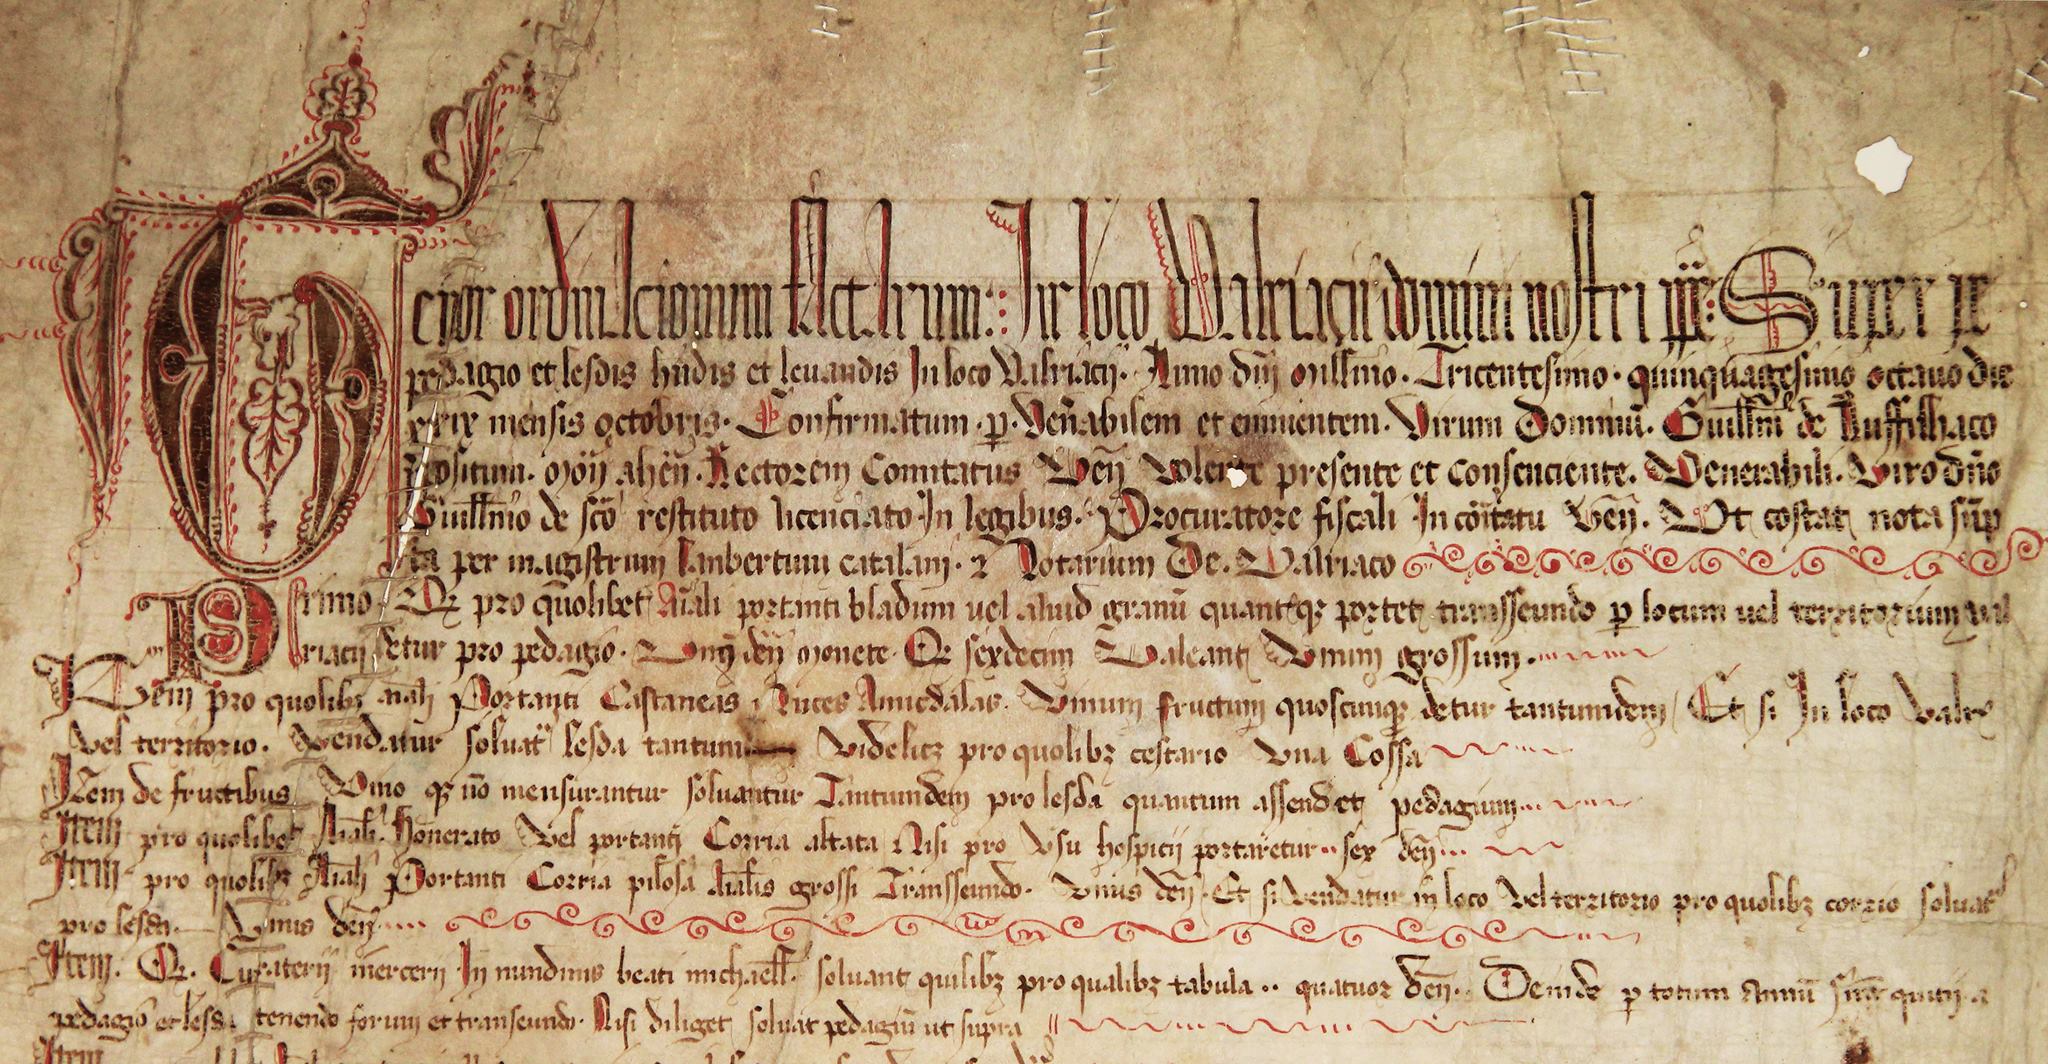 Tenor ordinacionum factarum: In loco Valriacii domini nostri ppe: Super pe
pedagio et lesdis hñdis et levandis In loco Valriacii. Anno dñi millmo. Tricentesimo. quinquagesimo octavo die
xxix mensis octobris. Confirmatum. p. Veñabilem et eminentem. Virum Dominũ. Guillm̃ de Ruffilhaco
ꝓpositum. Rectorem Comitatus Veñ Volente presente et consenciente. Venerabili. Viro dño
Guillmo de sc̃o restituto licenciato In legibus. Procuratore fiscali In com̃tatu Veñ. Ut costat nota sũp
ta per magistrum Lambertum catalani. Notarium De. Valriaco
Primo. Qz pro quolibet Añali portanti bladum vel aliud granũ portet transseundo p locum vel territorium val
riacii detur pro pedagio. Unq deñ monete. Qz sexdecim Valeant Unum grossum.
Item pro quolibz añali Portanti Castaneas Nuces Amicdalas. Unum fructum quoscunqz detur tantumdem Et si In loco Valrꝰ
vel territorio. Vendatur solvat lesda tantum Videlicz pro quolibz cestario Una Cossa
Item de fructibus Vino qz nõ mensurantur solvantur Tantumdem pro lesda quantum assendet pedagium
Item pro quolibet Añali. honerato Vel portanti Corria altata Nisi pro Usu hospicii portaretur sex deñ
Item pro quolibz Añali Portanti Corria pilosa Añalis grossi Transseundo. Unus deñ. Et si Vendatur in loco Vel territorio pro quolibz corrio solvat
pro lesda. Unus deñ
Item. Qz. Curaterii mercerii In nundinis beati michaell. solvant quilibz pro qualibz tabula.. quatuor deñ. Deinde p totum Annũ quitii a
pedagio et lesda tenendo forum et transeundo. Nisi diliget solvat pedagiũ ut supra
Item